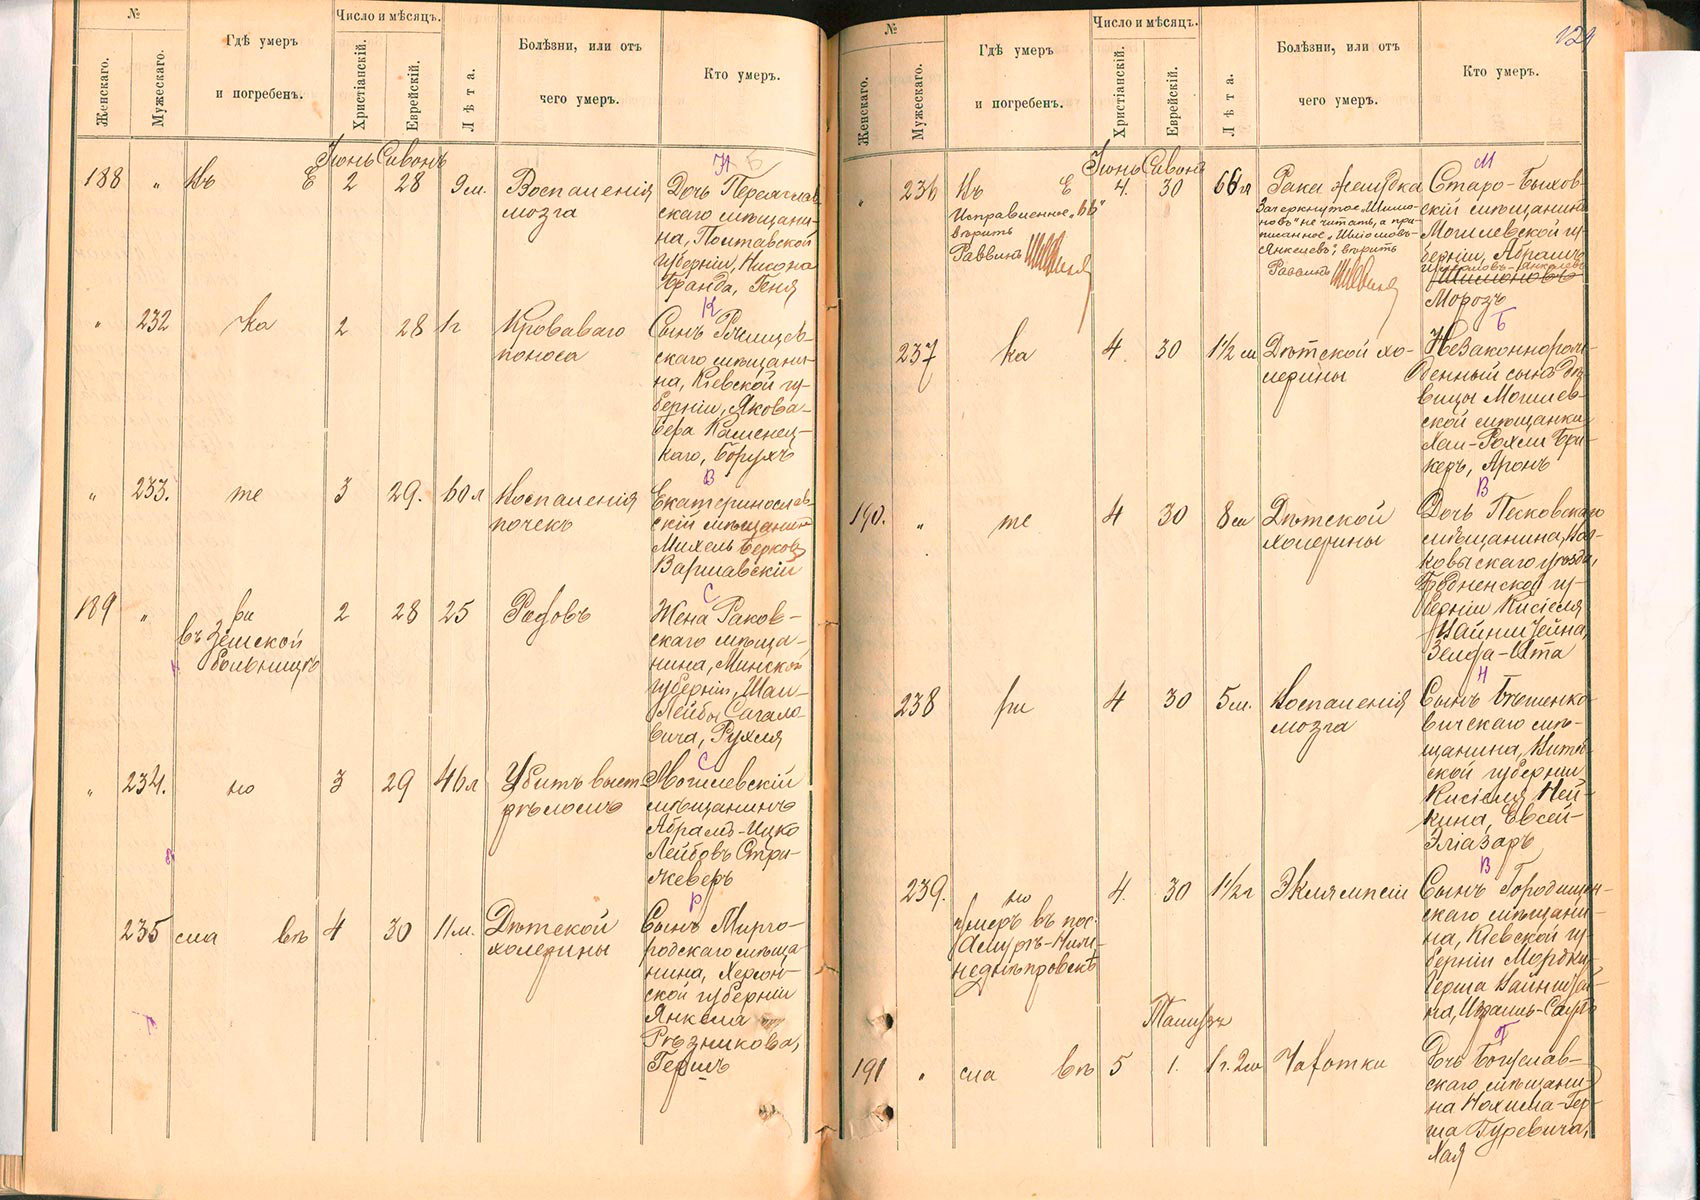 №
Женскаго.
Мужескаго.
Гдѣ умеръ
и погребенъ.
Число и мѣсяцъ.
Христіанскій.
Еврейскій.
Лѣта.
Болѣзни, или отъ
чего умеръ.
Кто умеръ.
Іюнь Сивонъ
188 " Въ Е 2 28 9 м. Воспаленія
мозга
Н Б
Дочь Переяслав-
скаго мѣщани-
на, Полтавской
губерніи, Нисона
Бранда, Геня
" 232 ка 2 28 1 г Кроваваго
поноса
К
Сынъ Ржищев-
скаго мѣщани-
на, Кіевской гу-
берніи, Якова-
Бера Каменец-
каго, Борухъ
" 233. те 3 29. 60 л Воспаленія
почекъ
В
Екатеринослав-
скій мѣщанинъ
Михель Берковъ
Варшавскій
189 " ри 2 28 25 Родовъ
въ Земской
больницѣ
С
Жена Раков-
скаго мѣща-
нина, Минской
губерніи, Шаи-
Лейбы Сагало-
вича, Рухля
" 234. но 3 29 46 л Убитъ выст-
рѣломъ
С
Могилевскій
мѣщанинъ
Абрамъ-Ицко
Лейбовъ Стри-
жеверъ
235 сла въ 4 30 11 м. Дѣтской
холерины
Р
Сынъ Мирго-
родскаго мѣща
нина, Херсон-
ской губерніи
Янкеля
Рѣзникова,
Гершъ
124
№
Женскаго.
Мужескаго.
Гдѣ умеръ
и погребенъ.
Число и мѣсяцъ.
Христіанскій.
Еврейскій.
Лѣта.
Болѣзни, или отъ
чего умеръ.
Кто умеръ.
Іюнь Сивонъ
" 236 Въ Е 4. 30 66 л Рака желудка
Исправленное „66"
вѣрить
Раввинъ
Зачеркнутое „Шимо-
новъ" не читать, а при-
писанное „Шлiомовъ-
Янкелевъ", вѣрить
Раввинъ
М
Старо-Быхов-
скій мѣщанинъ
Могилевской гу-
берніи, Абрамъ
Шлiомовъ-Янкелевъ
Шимоновъ
Морозъ
237 ка 4. 30 1 1/2 м Дѣтской хо-
лерины
Б
Незаконнорож-
денный сынъ дѣ-
вицы Могилев-
ской мѣщанки
Хаи-Рохли Бри-
керъ, Аронъ
190. " те 4 30 8 м Дѣтской
холерины
В
Дочь Песковскаго
мѣщанина, Вол-
ковыскаго уѣзда,
Гродненской гу-
берніи Кисіеля
Вайнштейна,
Зелда-Ита
238 ри 4 30 5 м. Воспаленія
мозга
Н
Сынъ Бѣшенко-
вичскаго мѣ-
щанина, Витеб-
ской губерніи
Кисіеля Ней-
кина, Евсей-
Эліазаръ
239. но 4. 30 1 1/2 г Эклямпсіи
Умеръ въ пос.
Амуръ-Ниж-
неднѣпровскъ
В
Сынъ Городищен-
скаго мѣщани-
на, Кіевской гу-
берніи Мордки-
Герша Вайншtей-
на, Израиль-Саулъ
Тамузъ
191 " сла въ 5 1. 1 г. 2 м Чахотки
Г
Дочь Богуслав-
скаго мѣщани-
на Нохима-Гер-
ша Гуревича,
Хая